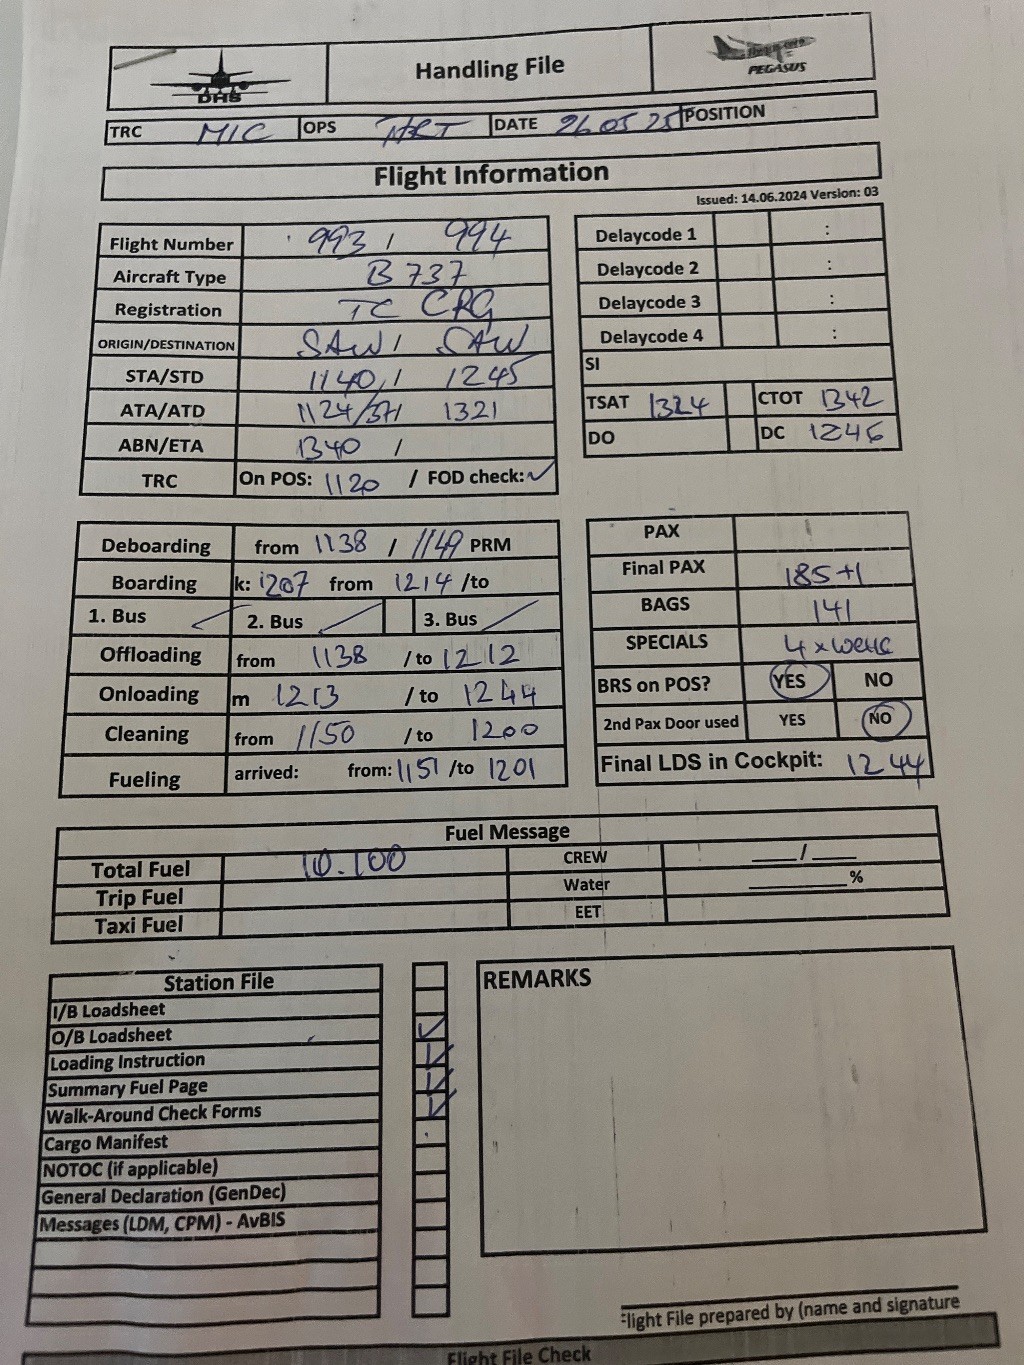 DHS
Handling File
PEGASUS
TRC MIC OPS DATE 26.05.25 POSITION
Flight Information
Issued: 14.06.2024 Version: 03
Flight Number 993 / 994
Aircraft Type B 737
Registration TC CRG
ORIGIN/DESTINATION SAW / SAW
STA/STD 1140 / 1245
ATA/ATD 1124/37/ 1321
ABN/ETA 1340 /
TRC On POS: 1120 / FOD check: ✓
Delaycode 1 :
Delaycode 2 :
Delaycode 3 :
Delaycode 4 :
SI
TSAT 1324 CTOT 1342
DO DC 1246
Deboarding from 1138 / 1149 PRM
Boarding k: 1207 from 1214 /to
1. Bus 2. Bus 3. Bus
Offloading from 1138 / to 1212
Onloading m 1213 / to 1244
Cleaning from 1150 / to 1200
Fueling arrived: from: 1151 /to 1201
PAX
Final PAX 185+1
BAGS 141
SPECIALS 4 x WCHC
BRS on POS? YES NO
2nd Pax Door used YES NO
Final LDS in Cockpit: 1244
Fuel Message
Total Fuel 10.100 CREW ____/____
Trip Fuel Water ________%
Taxi Fuel EET
Station File
I/B Loadsheet
O/B Loadsheet ✓
Loading Instruction ✓
Summary Fuel Page ✓
Walk-Around Check Forms ✓
Cargo Manifest
NOTOC (if applicable)
General Declaration (GenDec)
Messages (LDM, CPM) - AvBIS
REMARKS
Flight File prepared by (name and signature
Flight File Check